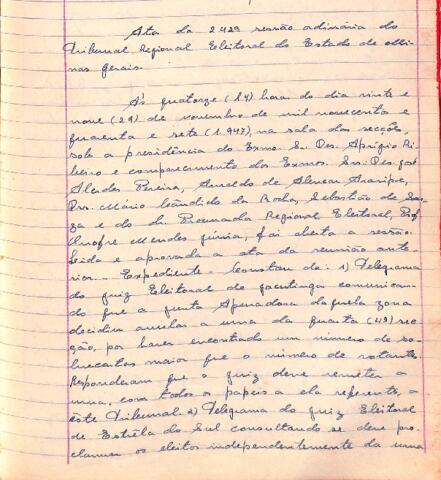 Ata da 242ª sessão ordinária do
Tribunal Regional Eleitoral do Estado de Mi-
nas Gerais.
Às quatorze (14) horas do dia vinte e
nove (29) de novembro de mil novecentos e
quarenta e sete (1.947), na sala das secções,
sob a presidência do Exmo. Sr. Des. Aprígio Ri-
beiro e comparecimento dos Exmos. Srs. Des. José
Alcides Pereira, Arnaldo de Alencar Araripe,
Drs. Mário Cândido da Rocha, Sebastião de Sou-
za e do dr. Procurador Regional Eleitoral, Prof.
Onofre Mendes Júnior, foi aberta a sessão.
Lida e aprovada a ata da reunião ante-
rior. Expediente - Constam de: 1) Telegrama
do juiz Eleitoral de Jacutinga comunican-
do que a junta Apuradora daquela zona
decidiu anular a urna da quarta (4ª) sec-
ção, por haver encontrado um número de so-
brecartas maior que o número de votantes.
Responderam que o juiz deve remeter a
urna, com todos os papeis a ela referente, a
êste Tribunal. 2) Telegrama do juiz Eleitoral
de Estrêla do Sul consultando se deve pro-
clamar os eleitos independentemente da urna